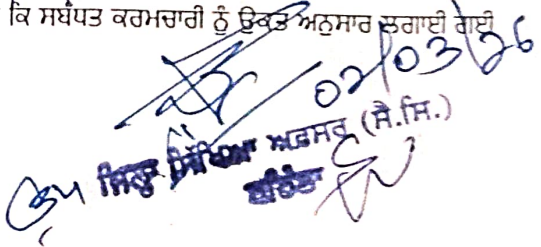 ਕਿ ਸਬੰਧਤ ਕਰਮਚਾਰੀ ਨੂੰ ਉਕਤ ਅਨੁਸਾਰ ਲਗਾਈ ਗਈ
02/03/26
ਜਿਲ੍ਹਾ ਸਿੱਖਿਆ ਅਫ਼ਸਰ (ਸੈ.ਸਿ.)